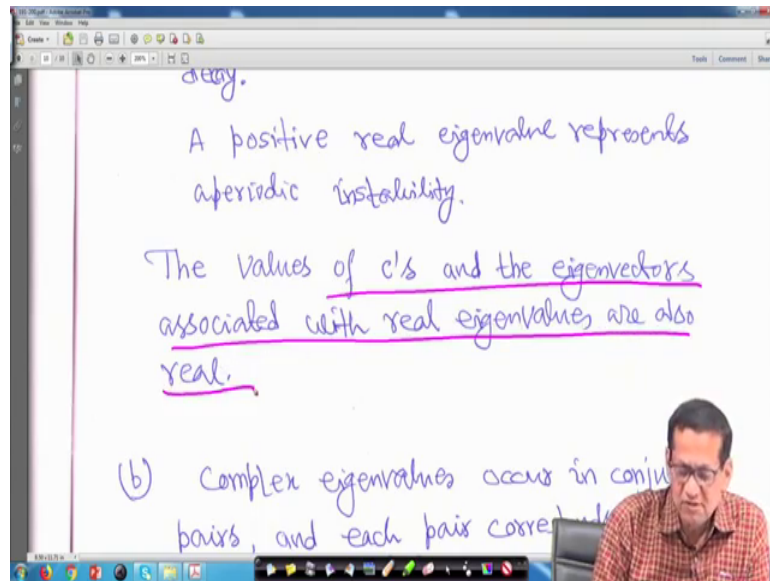 Edit View Window Help
Create
200%
Tools Comment
decay.
A positive real eigenvalue represents
aperiodic instability.
The values of c's and the eigenvectors
associated with real eigenvalues are also
real.
(b) Complex eigenvalues occur in conju
pairs, and each pair